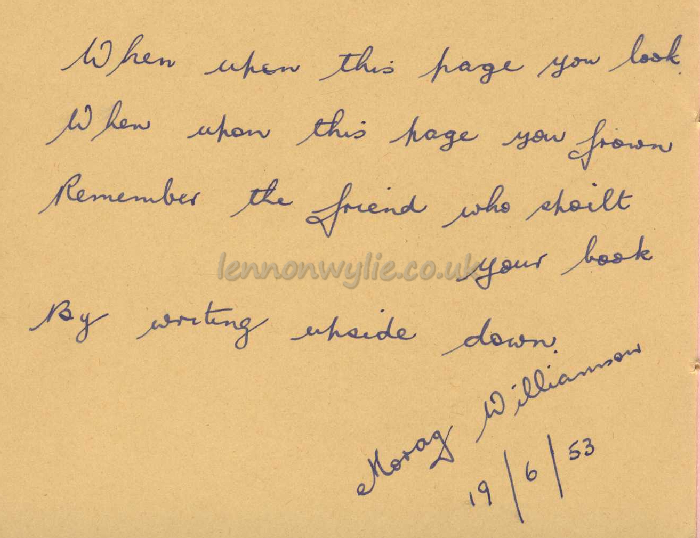 When upon this page you look
When upon this page you frown
Remember the friend who spoilt
your book
lennonwylie.co.uk
By writing upside down.
Morag Williamson
19/6/53